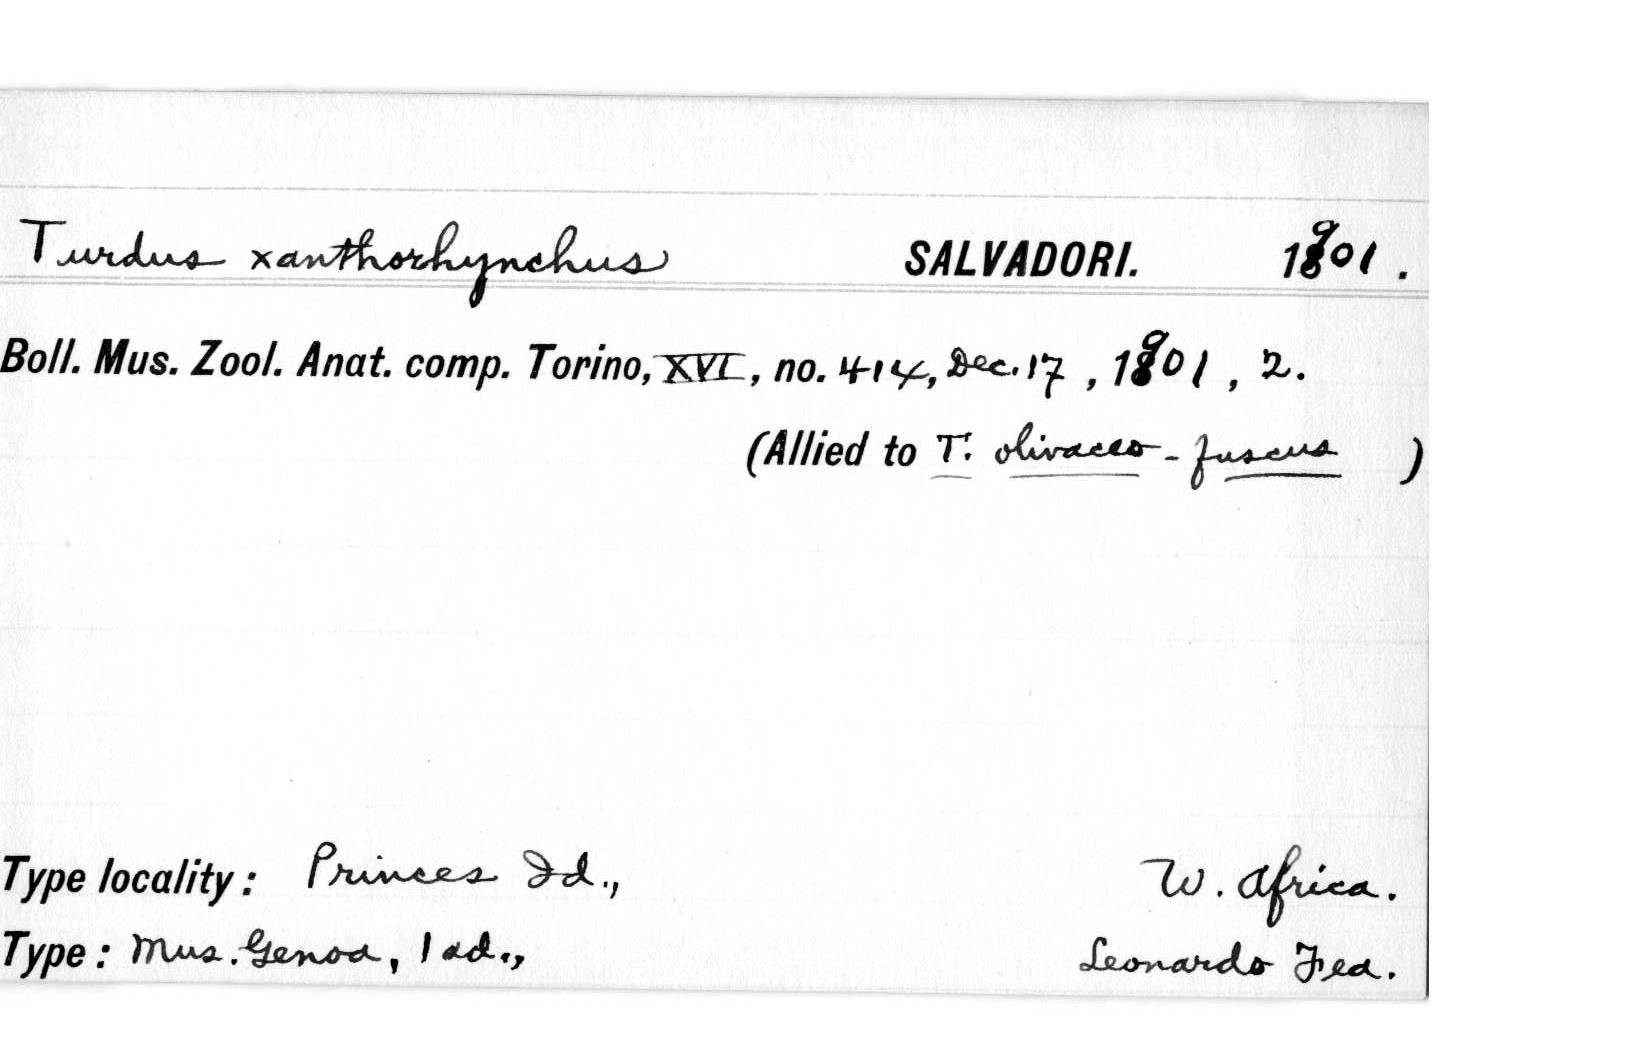 Turdus xanthorhynchus SALVADORI. 1901.
Boll. Mus. Zool. Anat. comp. Torino, XVI, no. 414, Dec. 17, 1901, 2.
(Allied to T. olivaceo-fuscus )
Type locality: Princes Id., W. Africa.
Type: Mus. Genoa, 1 ad., Leonardo Fea.